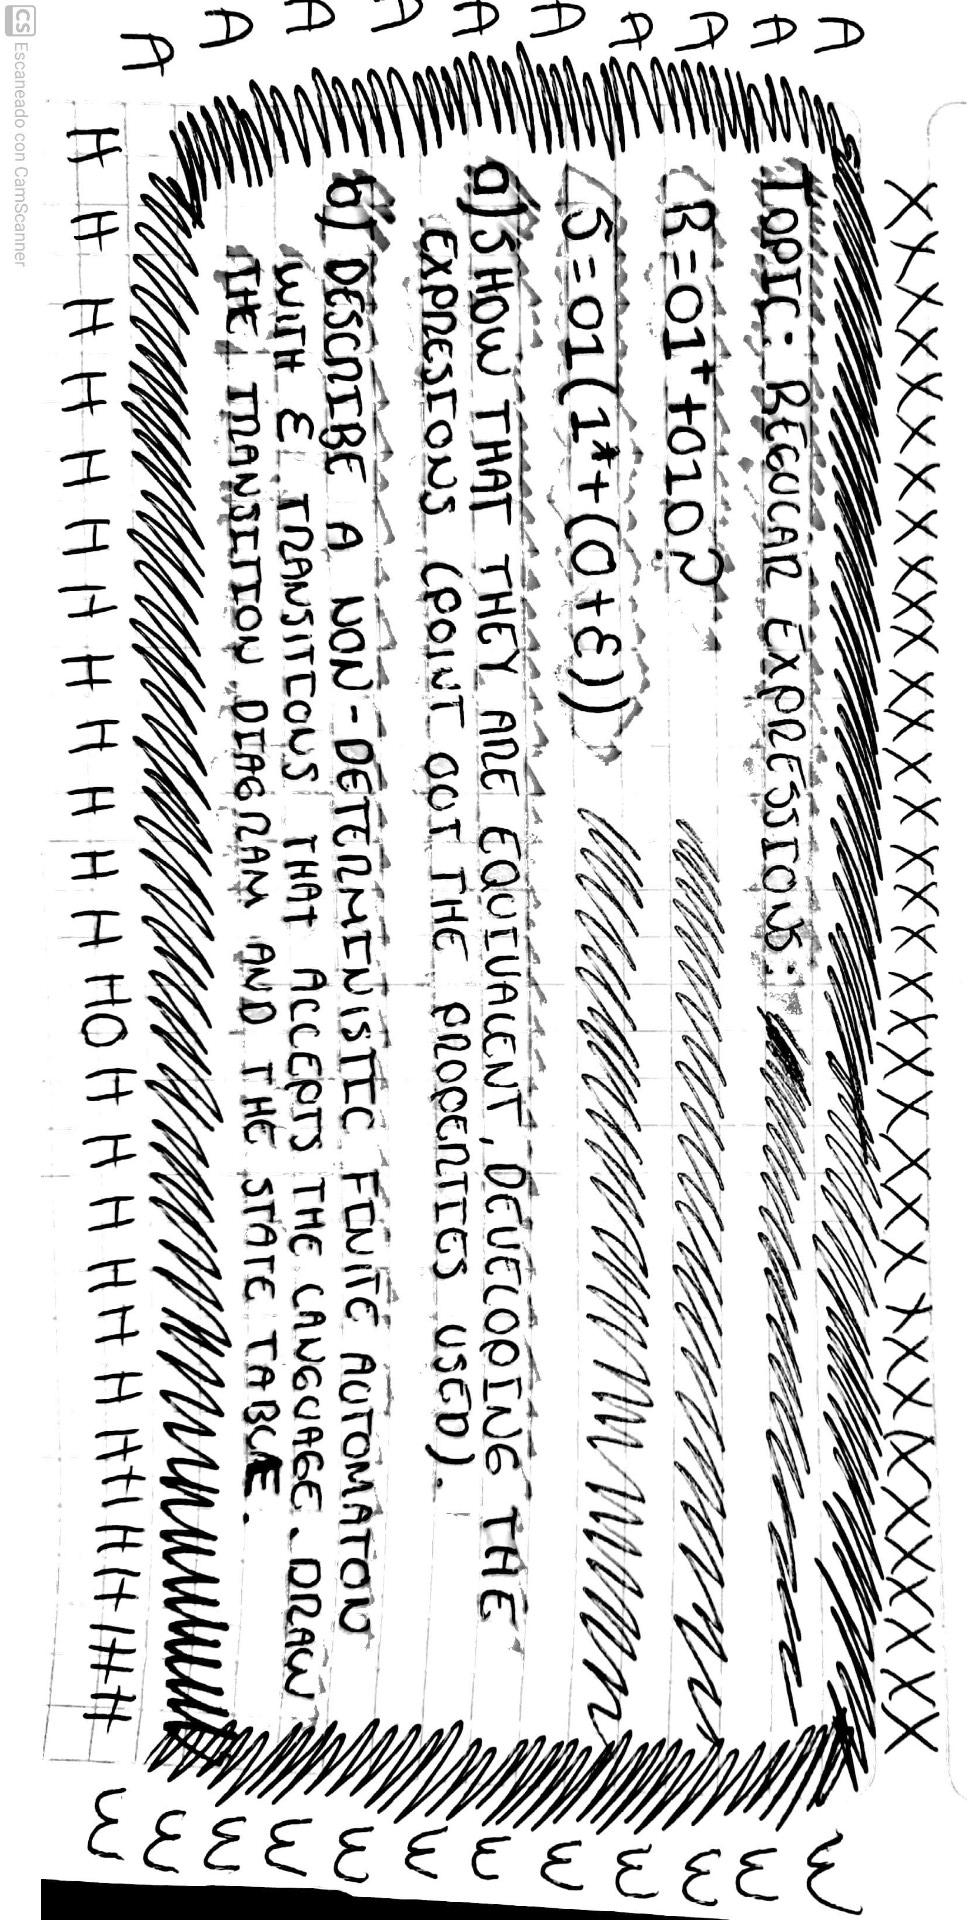 A A A A A A A A A A
X X X X X X X X X X X X X X X X X X X X X X X X X X
TOPIC: REGULAR EXPRESSIONS:
R=01⁺+010?
S=01(1*+(0+ε))
a) SHOW THAT THEY ARE EQUIVALENT, DEVELOPING THE
EXPRESIONS (POINT OUT THE PROPERTIES USED).
b) DESCRIBE A NON-DETERMINISTIC FINITE AUTOMATON
WITH ε TRANSITIONS THAT ACCEPTS THE LANGUAGE. DRAW
THE TRANSITION DIAGRAM AND THE STATE TABLE.
H H H H H H H H H H H H HO H H H H H H H H H H H H
ε ε ε ε ε ε ε ε ε ε ε ε
CS Escaneado con CamScanner